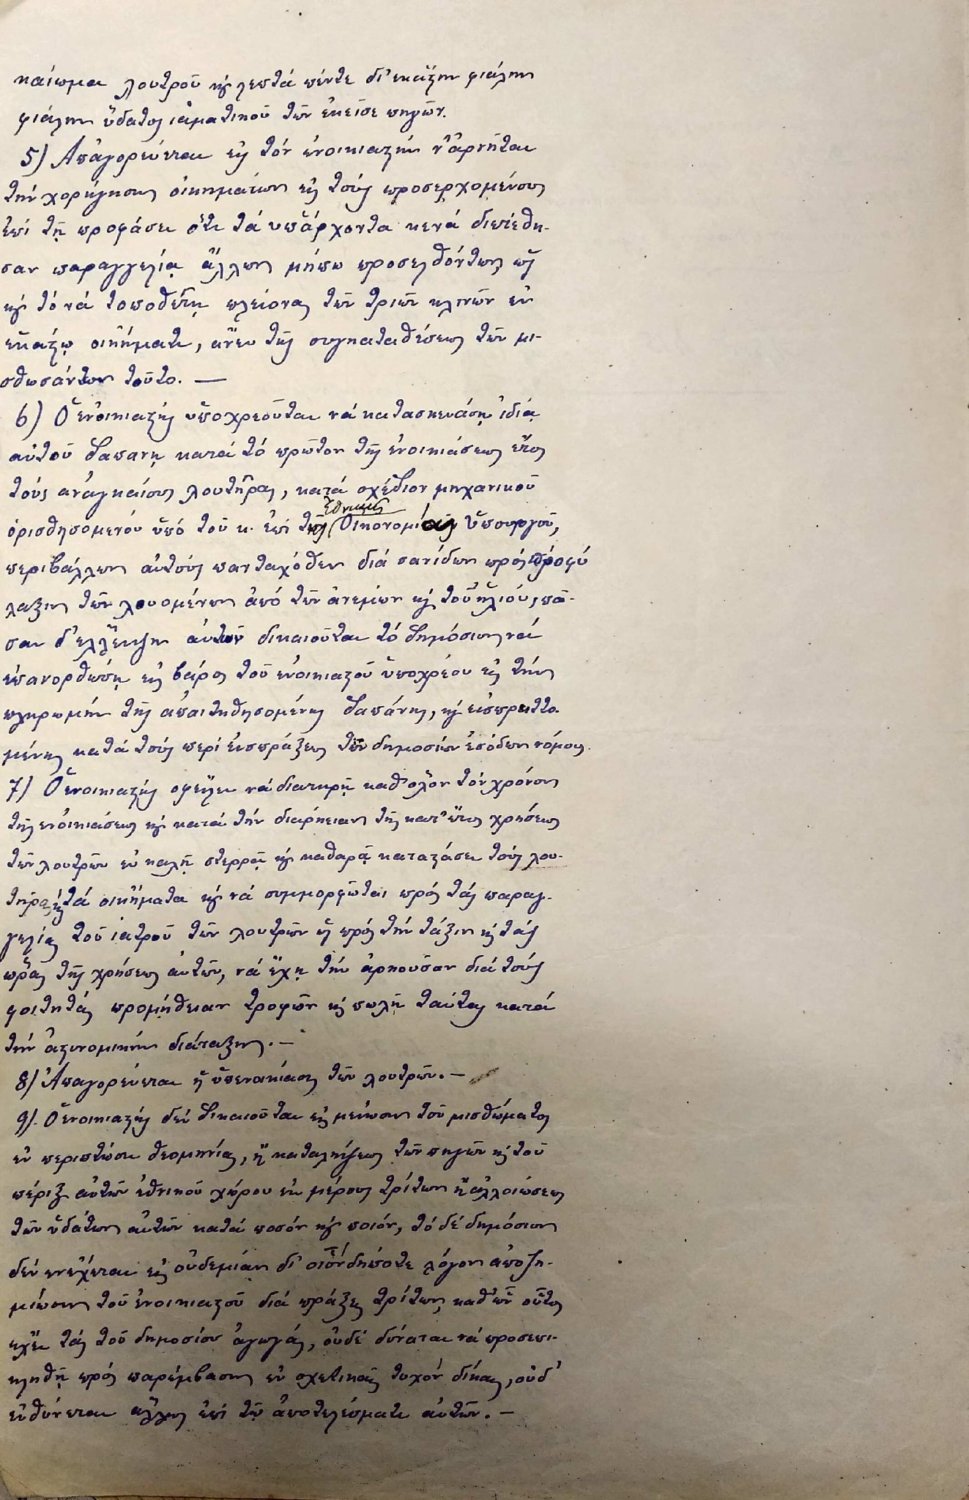 καίωμα λουτροῦ κ̀ λεπτά πέντε δι' ἑκάστην φιάλην
φιάλην ὕδατος ἰαματικοῦ τῶν ἐκεῖσε πηγῶν.
5) Ἀπαγορεύεται εἰς τόν ἐνοικιαστήν ν' ἀρνῆται
τήν χορήγησιν οἰκημάτων εἰς τούς προσερχομένους
ἐπί τῇ προφάσει ὅτι τά ὑπάρχοντα κενά διετέθη-
σαν παραγγελίᾳ ἄλλων μήπω προσελθόντων, ὡς
κ̀ τό νά τοποθέτῃ πλείονας τῶν τριῶν κλινῶν ἐν
ἑκάστῳ οἰκήματι, ἄνευ τῆς συγκαταθέσεως τῶν μι-
σθωσάντων τοῦτο. —
6) Ὁ ἐνοικιαστής ὑποχρεοῦται νά κατασκευάσῃ ἰδίᾳ
αὐτοῦ δαπάνῃ κατά τό πρῶτον τῆς ἐνοικιάσεως ἔτος
τούς ἀναγκαίους λουτῆρας, κατά σχέδιον μηχανικοῦ
ὁρισθησομένου ὑπό τοῦ κ. ἐπί τῆς Ἐθνικῆς Οἰκονομίας Ὑπουργοῦ,
περιβάλλων αὐτούς πανταχόθεν διά σανίδων πρός προφύ
λαξιν τῶν λουομένων ἀπό τῶν ἀνέμων κ̀ τοῦ ἡλίου, πᾶ-
σαν δ' ἔλλειψιν αὐτῶν δικαιοῦται τό Δημόσιον νά
ἐπανορθώσῃ εἰς βάρος τοῦ ἐνοικιαστοῦ ὑποχρέου εἰς τήν
πληρωμήν τῆς ἀπαιτηθησομένης δαπάνης, κ̀ εἰσπραττο
μένης κατά τούς περί εἰσπράξεως τῶν δημοσίων ἐσόδων νόμους.
7) Ὁ ἐνοικιαστής ὀφείλει νά διατηρῇ καθ' ὅλον τόν χρόνον
τῆς ἐνοικιάσεως κ̀ κατά τήν διάρκειαν τῆς κατ' ἔτος χρήσεως
τῶν λουτρῶν ἐν καλῇ στερρᾷ κ̀ καθαρᾷ καταστάσει τούς λου-
τῆρας κ̀ τά οἰκήματα κ̀ νά συμμορφῶται πρός τάς παραγ-
γελίας τοῦ ἰατροῦ τῶν λουτρῶν ἤ πρός τήν τάξιν κ̀ τάς
ὥρας τῆς χρήσεως αὐτῶν, νά ἔχῃ τήν ἀρκοῦσαν διά τούς
φοιτητάς προμήθειαν τροφῶν κ̀ πωλῇ ταύτας κατά
τήν ἀστυνομικήν διάταξιν. —
8) Ἀπαγορεύεται ἡ ὑπενοικίασις τῶν λουτρῶν. —
9). Ὁ ἐνοικιαστής δέν δικαιοῦται εἰς μείωσιν τοῦ μισθώματος
ἐν περιπτώσει θεομηνίας, ἤ καταλήψεως τῶν πηγῶν κ̀ τοῦ
πέριξ αὐτῶν ἐθνικοῦ χώρου ἐκ μέρους τρίτων ἤ ἀλλοιώσεως
τῶν ὑδάτων αὐτῶν κατά ποσόν κ̀ ποιόν, τό δέ δημόσιον
δέν ἐνέχεται εἰς οὐδεμίαν δι' οἱονδήποτε λόγον ἀποζη-
μίωσιν τοῦ ἐνοικιαστοῦ διά πράξεις τρίτων, καθ' ὧν οὗτος
ἔχει τάς τοῦ δημοσίου ἀγωγάς, οὐδέ δύναται νά προσεπι-
κληθῇ πρός παρέμβασιν ἐν σχετικαῖς τυχόν δίκαις, οὐδ'
εὐθύνεται ἄλλως ἐπί τῷ ἀποτελέσματι αὐτῶν. —